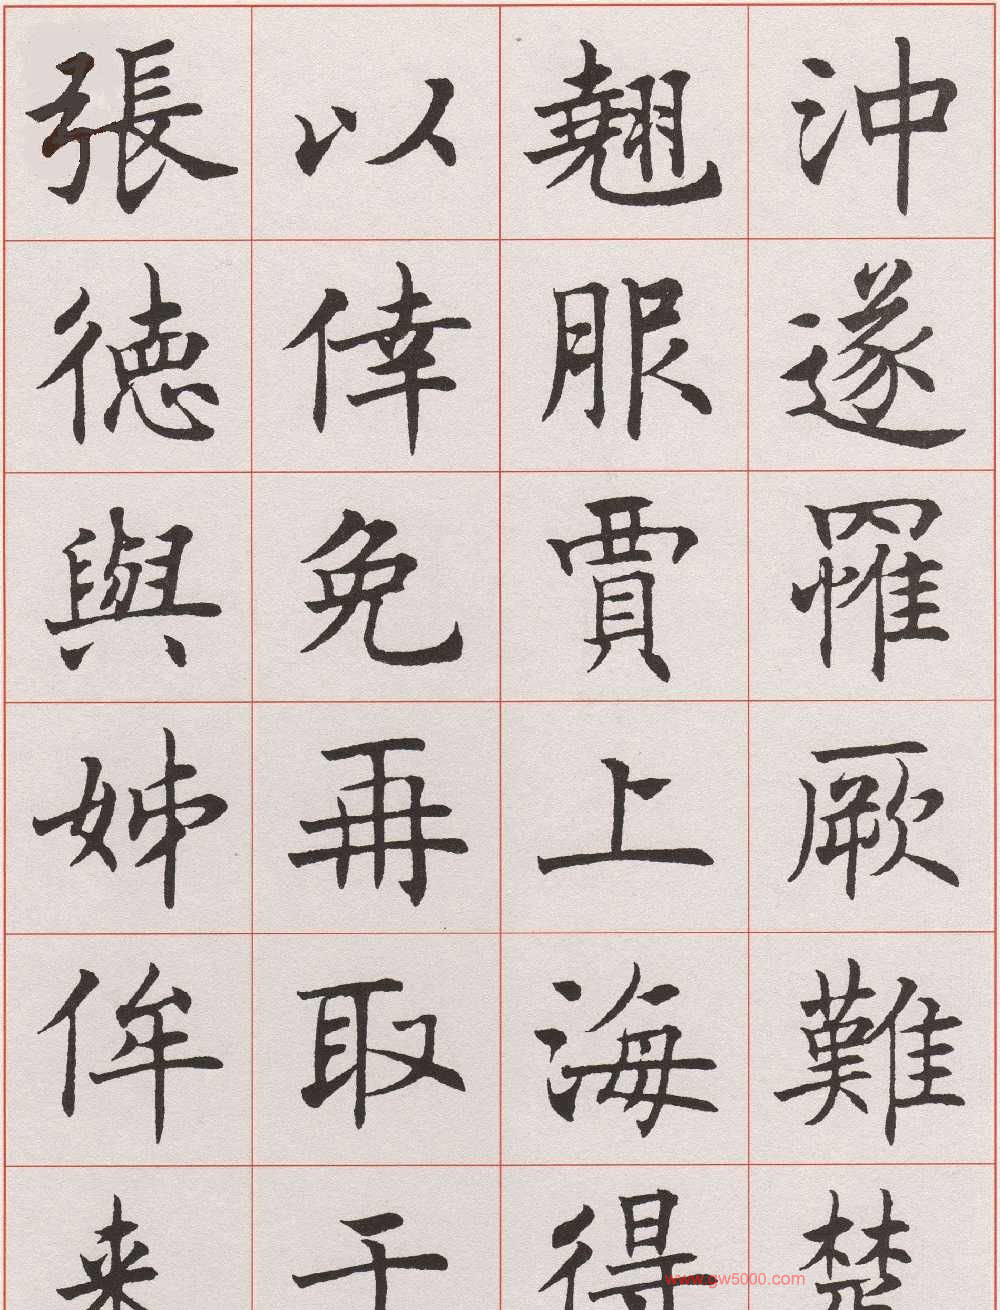 沖遂罹厥難楚
翹服賈上海得
以倖免再取于
張德與姊侔来
www.gw5000.com